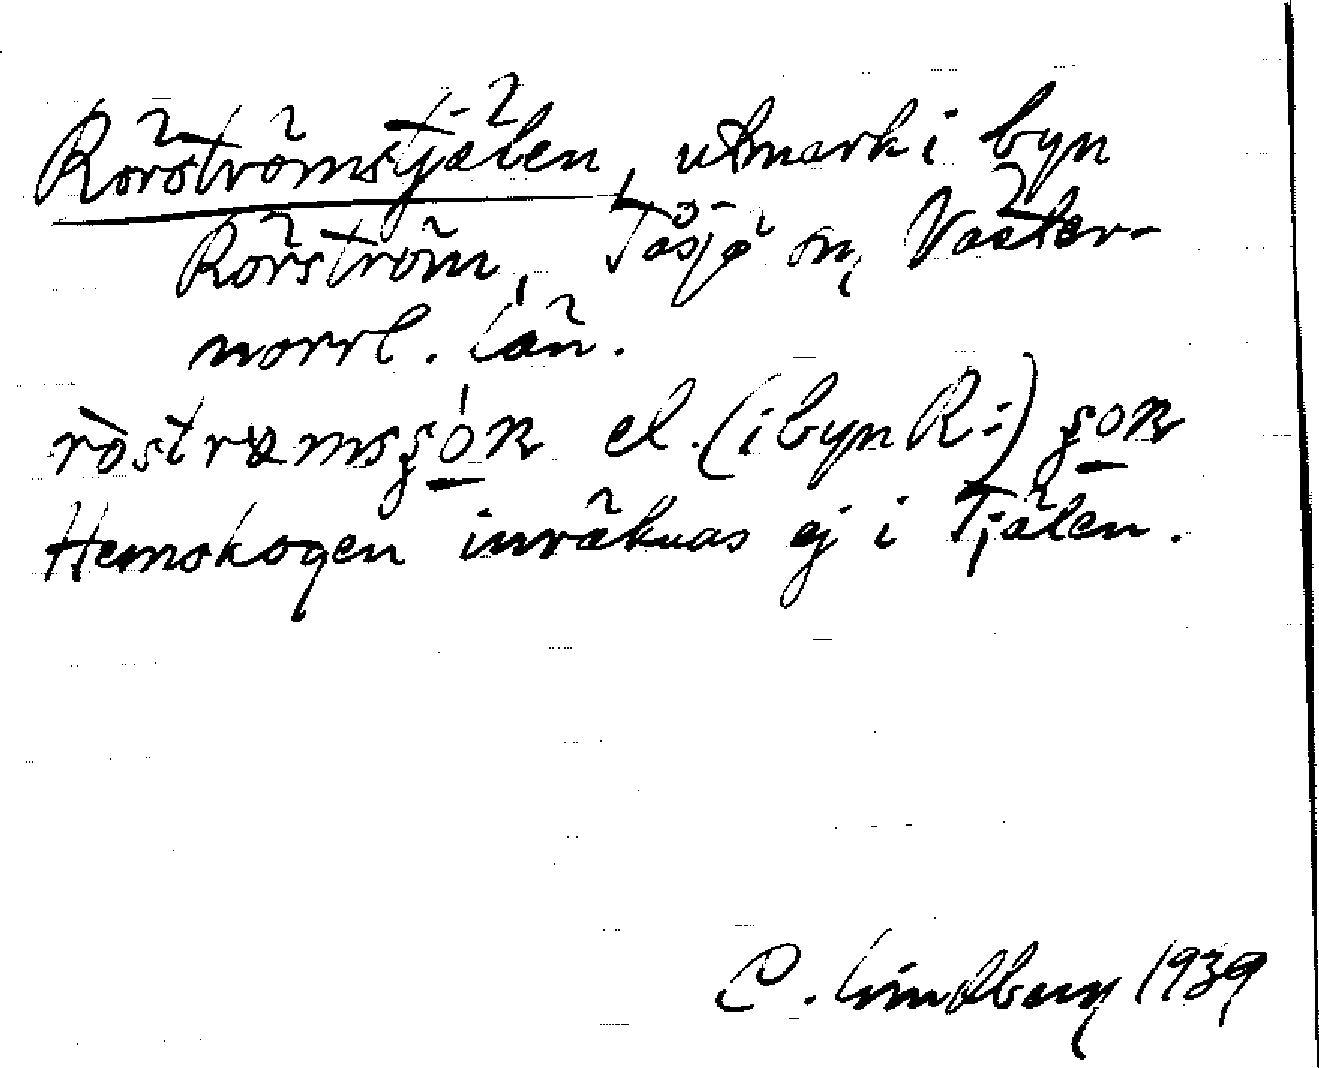 Rörströmstjälen, utmark i byn
Rörström, Tåsjö sn, Väster-
norrl. län.
el. (i byn R:)
Hemskogen inräknas ej i Tjälen.
C. Lindberg 1939